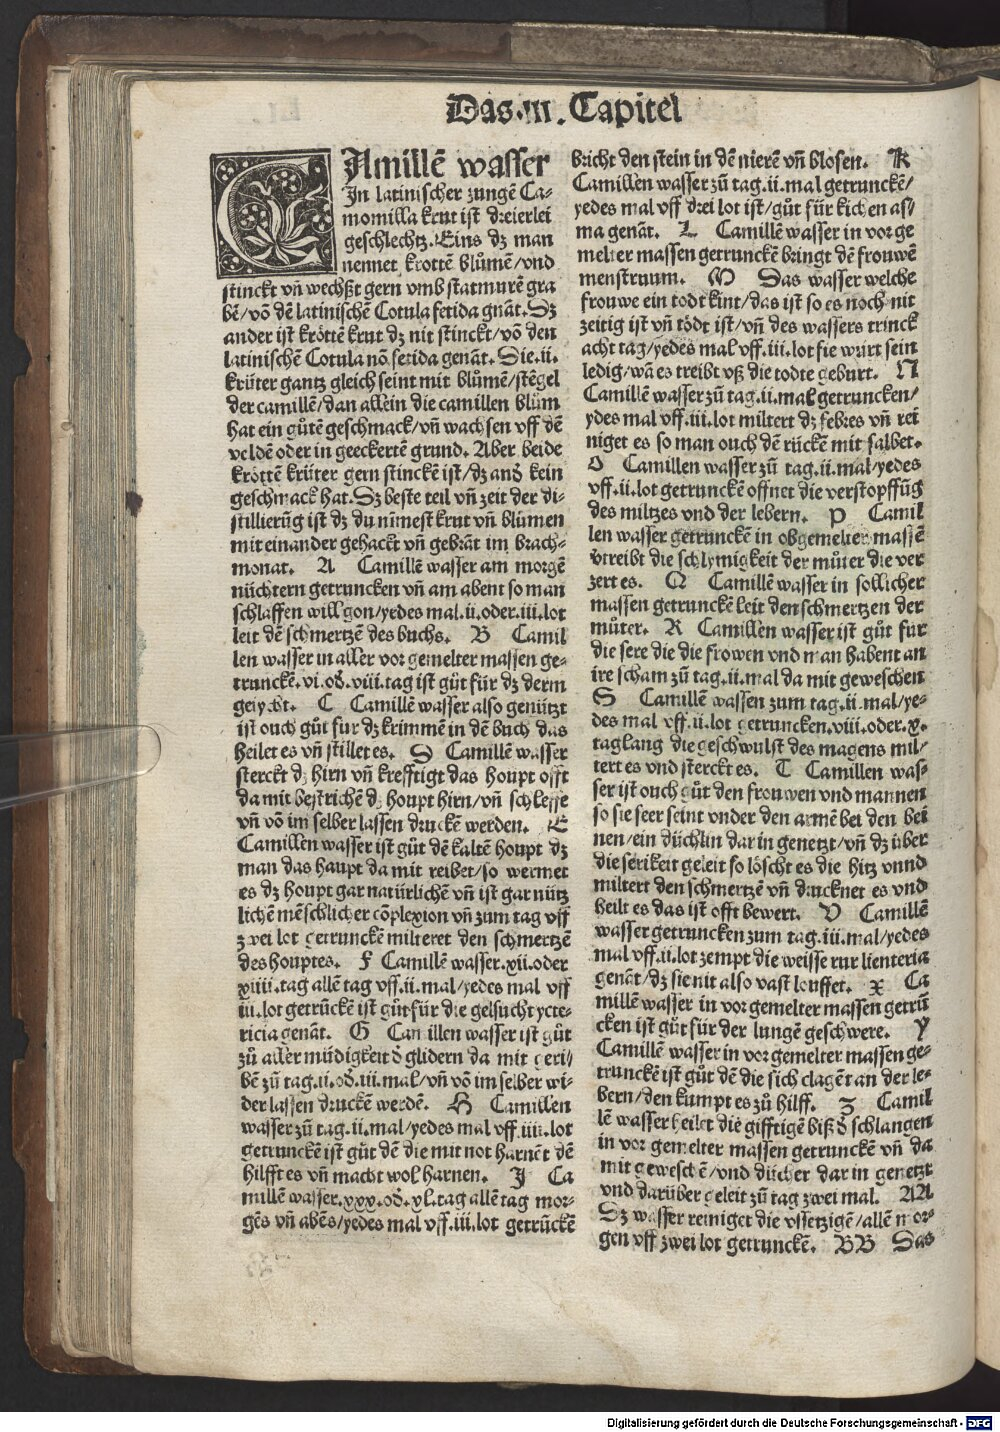 Das .III. Capitel
CAmillē wasser
In latinischer zungē Ca-
momilla krut ist dreierlei
geschlechtz. Eins dz man
nennet krottē blůmē/vnd
stinckt vñ wechßt gern vmb statmurē gra
bē/võ dē latinischē Cotula fetida gnāt. Dz
ander ist kröttē krut dz nit stinckt/võ den
latinischē Cotula nō fetida genāt. Die .ii.
krüter gantz gleich seint mit blůmē/stēgel
der camillē/dan allein die camillen blům
hat ein gůtē geschmack/vñ wachsen vff dē
veldē oder in geeckertē grund. Aber beide
kröttē krüter gern stinckē ist/dz and̄ kein
geschmack hat. Dz beste teil vñ zeit der di-
stillierūg ist dz du nimest krut vñ blůmen
mit einander gehackt vñ gebrāt im brach-
monat. A Camillē wasser am morgē
nüchtern getruncken vñ am abent so man
schlaffen will gon/yedes mal .ii. oder .iii. lot
leit dē schmertzē des buchs. B Camil
len wasser in aller vor gemelter massen ge-
trunckē .vi. od̄ .viii. tag ist gůt für dz derm
gegycht. C Camillē wasser also genützt
ist ouch gůt fur dz krimmē in dē buch das
heilet es vñ stillet es. D Camillē wasser
sterckt dz hirn vñ krefftigt das houpt offt
da mit bestrichē dz houpt hirn/vñ schleffe
vñ võ im selber lassen druckē werden. E
Camillen wasser ist gůt dē kaltē houpt dz
man das haupt da mit reibet/so wermet
es dz houpt gar natürlichē vñ ist gar nütz
lichē mēschlicher cōplexion vñ zum tag vff
zwei lot getrunckē milteret den schmertzē
des houptes. F Camillē wasser .xii. oder
xiiii. tag allē tag vff .ii. mal/yedes mal vff
iii. lot getrūckē ist gůt für die gelsucht ycte-
ricia genāt. G Camillen wasser ist gůt
zů aller müdigkeit d̄ glidern da mit geri/
bē zů tag .ii. od̄ .iii. mal/vñ võ im selber wi-
der lassen druckē werdē. H Camillen
wasser zů tag .ii. mal/yedes mal vff .iiii. lot
getrunckē ist gůt dē die mit not harnēt dē
hilfft es vñ macht wol harnen. J Ca
millē wasser .xxx. od̄ .xl. tag allē tag mor-
gēs vñ abēs/yedes mal vff .iii. lot getrūckē
bricht den stein in dē nierē vñ blosen. K
Camillen wasser zů tag .ii. mal getrunckē/
yedes mal vff drei lot ist/gůt für kichen as/
ma genāt. L Camillē wasser in vor ge
melter massen getrunckē bringt dē frouwē
menstruum. M Das wasser welche
frouwe ein todt kint/das ist so es noch nit
zeitig ist vñ tödt ist/vñ des wassers trinck
acht tag/yedes mal vff .iii. lot sie würt sein
ledig/wā es treibt vß die todte geburt. N
Camillē wasser zů tag .ii. mal getruncken/
ydes mal vff .iii. lot miltert dz febres vñ rei
niget es so man ouch dē rückē mit salbet.
O Camillen wasser zů tag .ii. mal/yedes
vff .ii. lot getrunckē offnet die verstopffūg
des miltzes vnd der lebern. P Camil
len wasser getrunckē in obgemelter massē
vtreibt die schlymigkeit der můter die ver
zert es. Q Camillē wasser in sollicher
massen getrunckē leit den schmertzen der
můter. R Camillen wasser ist gůt für
die sere die die frowen vnd man habent an
ire scham zů tag .ii. mal da mit geweschen
S Camillē wassen zum tag .ii. mal/ye-
des mal vff .ii. lot getruncken .viii. oder .x.
tag lang die geschwulst des magens mil/
tert es vnd sterckt es. T Camillen was-
ser ist ouch gůt den frouwen vnd mannen
so sie seer seint vnder den armē bei den bei
nen/ein düchlin dar in genetzt/vñ dz über
die serikeit geleit so löscht es die hitz vnnd
miltert den schmertzē vñ drucknet es vnd
heilt es das ist offt bewert. V Camillē
wasser getruncken zum tag .iii. mal/yedes
mal vff .ii. lot zempt die weisse rur lienteria
genāt/dz sie nit also vast louffet. X Ca
millē wasser in vor gemelter massen getrū
cken ist gůt für der lungē geschwere. Y
Camillē wasser in vor gemelter massen ge-
trunckē ist gůt dē die sich clagēt an der le-
bern/den kumpt es zů hilff. Z Camil
lē wasser heilet die gifftigē biß d̄ schlangen
in vor gemelter massen getrunckē vñ da
mit geweschē/vnd dücher dar in genetzt
vnd darüber geleit zů tag zwei mal. AA
Dz wasser reiniget die vssetzigē/allē mor-
gen vff zwei lot getrunckē. BB Das
Digitalisierung gefördert durch die Deutsche Forschungsgemeinschaft - DFG